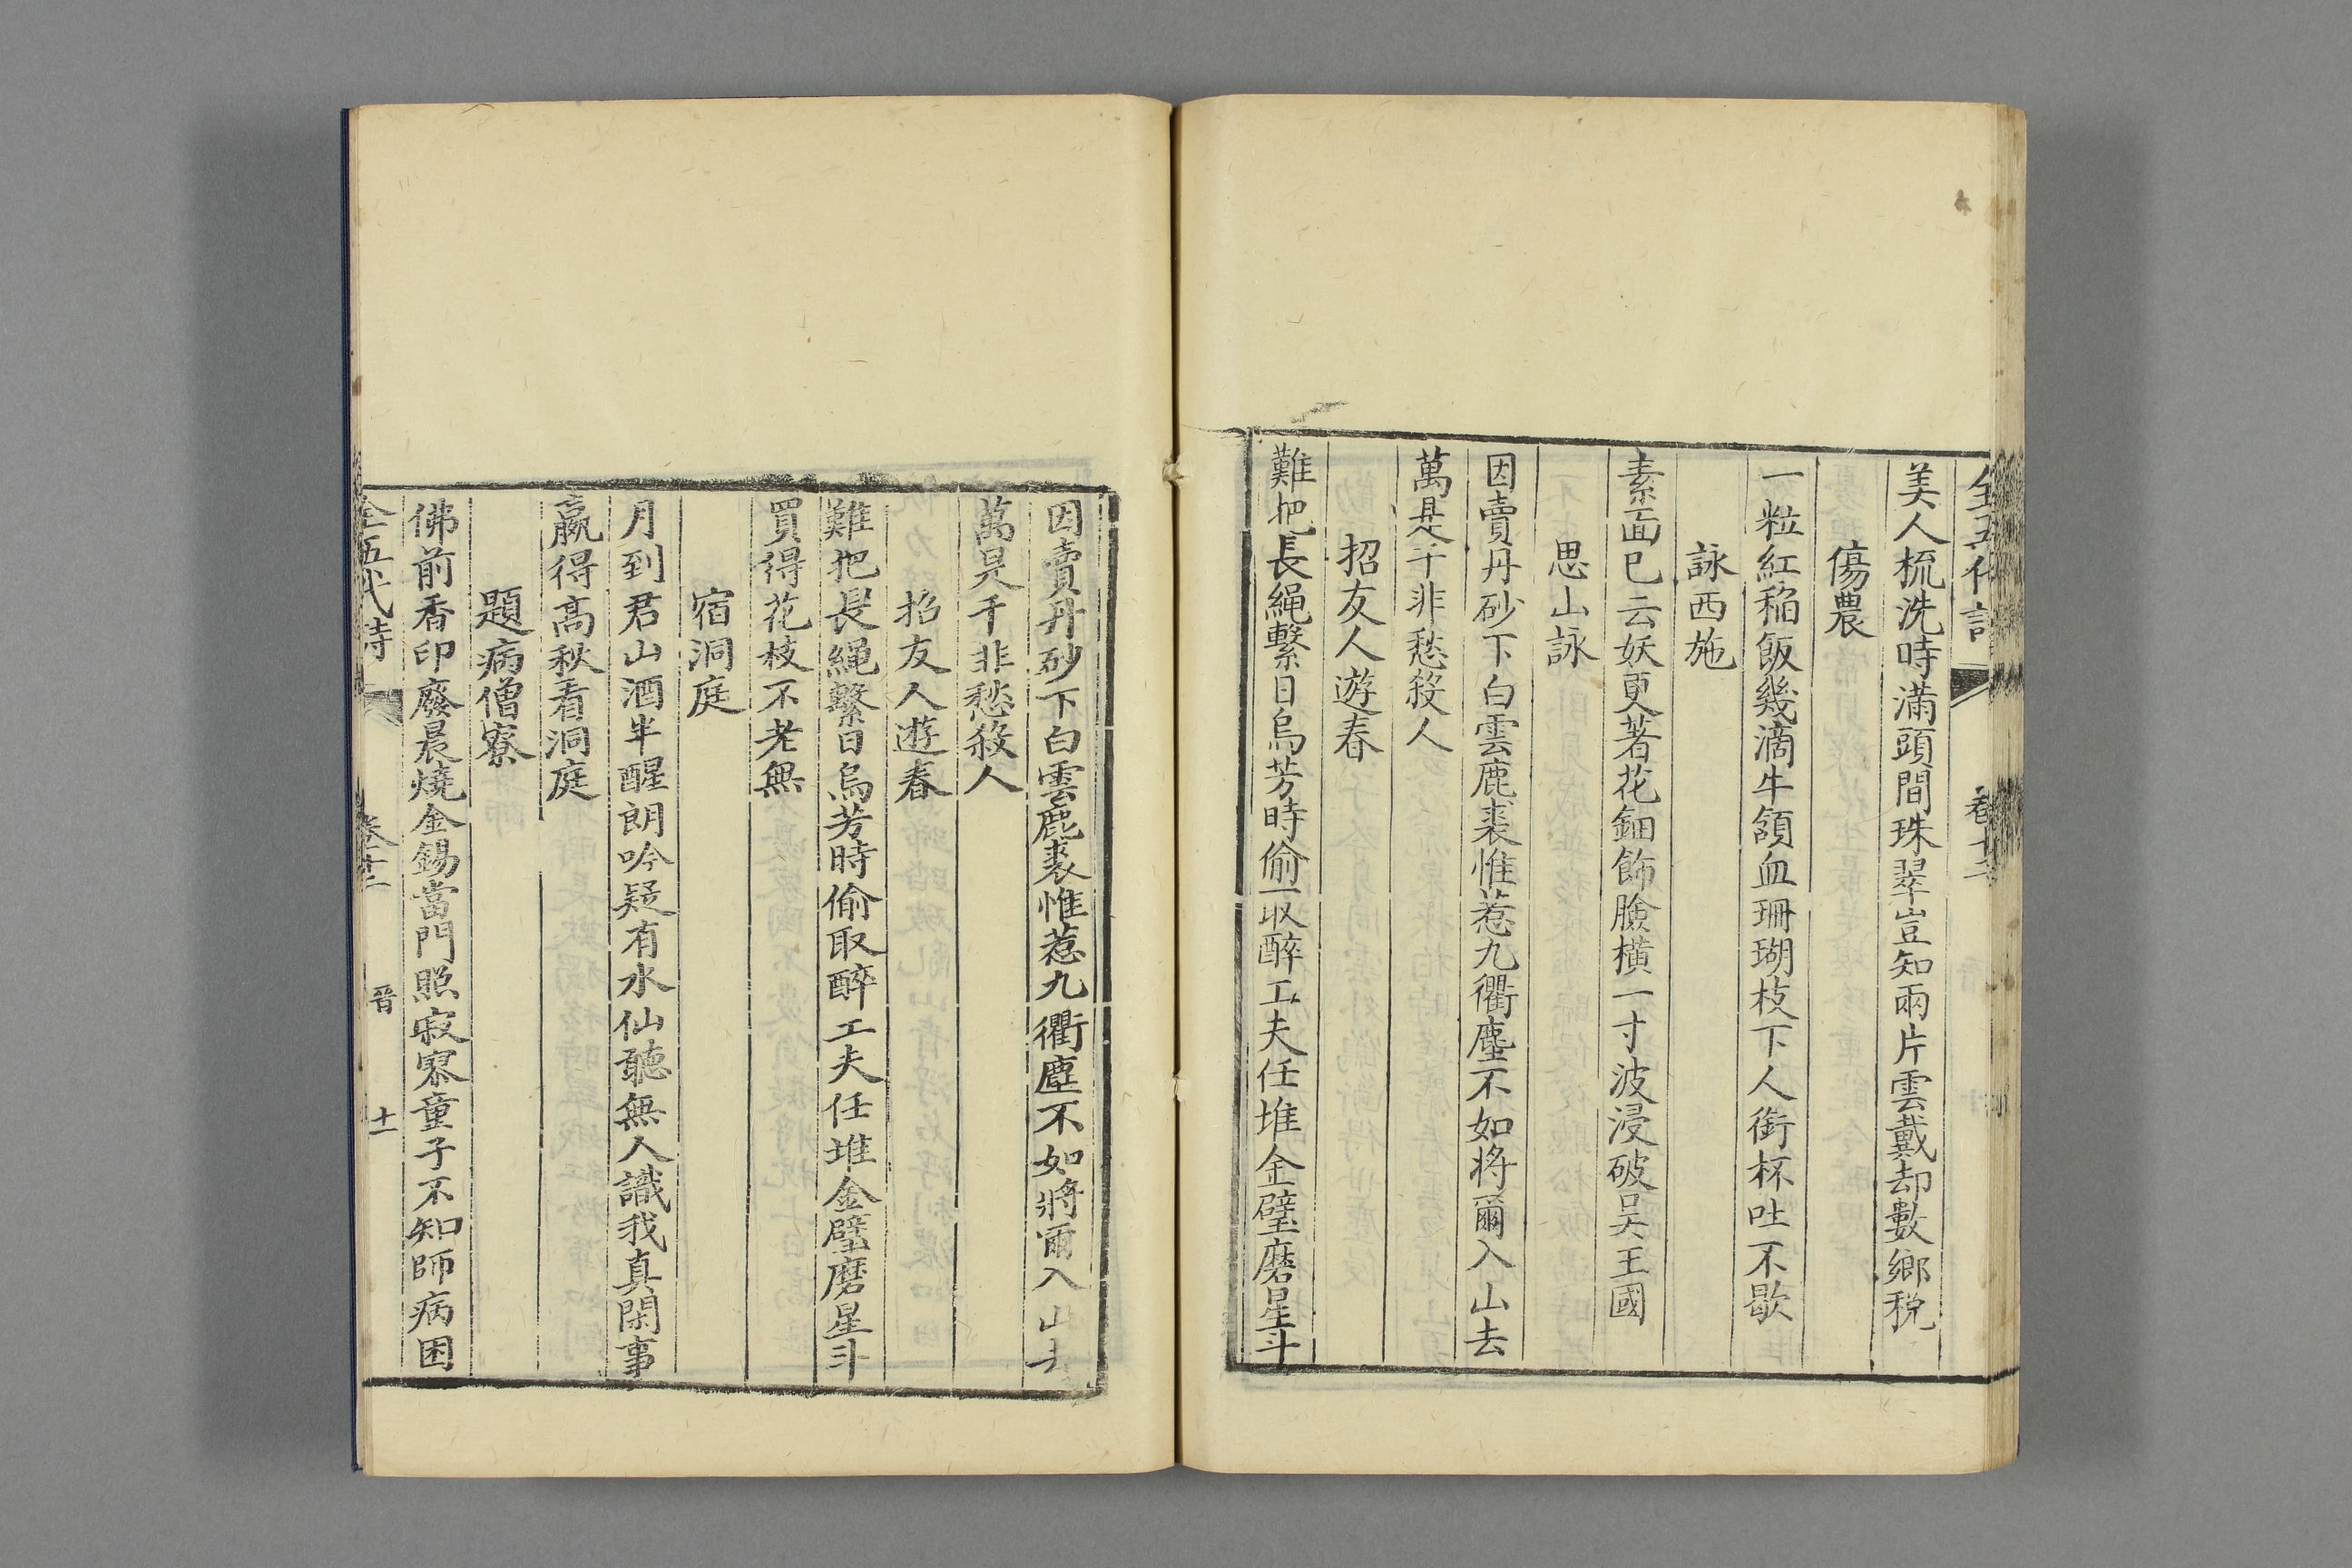 全五代詩
美人梳洗時滿頭間珠翠豈知兩片雲戴却數鄉稅
傷農
一粒紅稻飯幾滴牛頷血珊瑚枝下人銜杯吐不歇
詠西施
素面已云妖更著花鈿飾臉橫一寸波浸破吳王國
思山詠
因賣丹砂下白雲鹿裘惟惹九衢塵不如將爾入山去
萬是千非愁殺人
招友人遊春
難把長繩繫日烏芳時偷取醉工夫任堆金璧磨星斗
因賣丹砂下白雲鹿裘惟惹九衢塵不如將爾入山去
萬是千非愁殺人
招友人遊春
難把長繩繫日烏芳時偷取醉工夫任堆金璧磨星斗
買得花枝不老無
宿洞庭
月到君山酒半醒朗吟疑有水仙聽無人識我真閑事
贏得高秋看洞庭
題病僧寮
佛前香印廢晨燒金錫當門照寂寥童子不知師病困
全五代詩 晉 十一